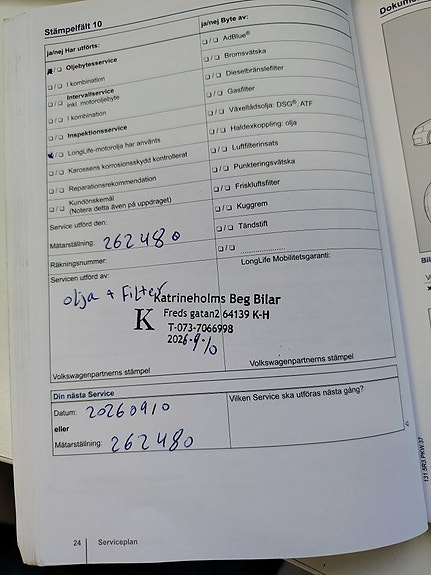 Dokume
Stämpelfält 10
ja/nej Har utförts:
ja/nej Byte av:
/ Oljebytesservice
/ I kombination
/ Intervallservice
inkl. motoroljebyte
/ I kombination
/ Inspektionsservice
/ LongLife-motorolja har använts
/ Karossens korrosionsskydd kontrollerat
/ Reparationsrekommendation
/ Kundönskemål
(Notera detta även på uppdraget)
/ AdBlue®
/ Bromsvätska
/ Dieselbränslefilter
/ Gasfilter
/ Växellådsolja: DSG®, ATF
/ Haldexkoppling: olja
/ Luftfilterinsats
/ Punkteringsvätska
/ Friskluftsfilter
/ Kuggrem
/ Tändstift
/ ....................
Service utförd den:
Mätarställning: 262480
Räkningsnummer:
LongLife Mobilitetsgaranti:
Servicen utförd av:
olja + Filter
Katrineholms Beg Bilar
K
Freds gatan2 64139 K-H
T-073-7066998
Volkswagenpartnerns stämpel
Volkswagenpartnerns stämpel
Din nästa Service
Datum: 20260910
eller
Mätarställning: 262480
Vilken Service ska utföras nästa gång?
24
Serviceplan
131.5R3.PKW.37
Bil